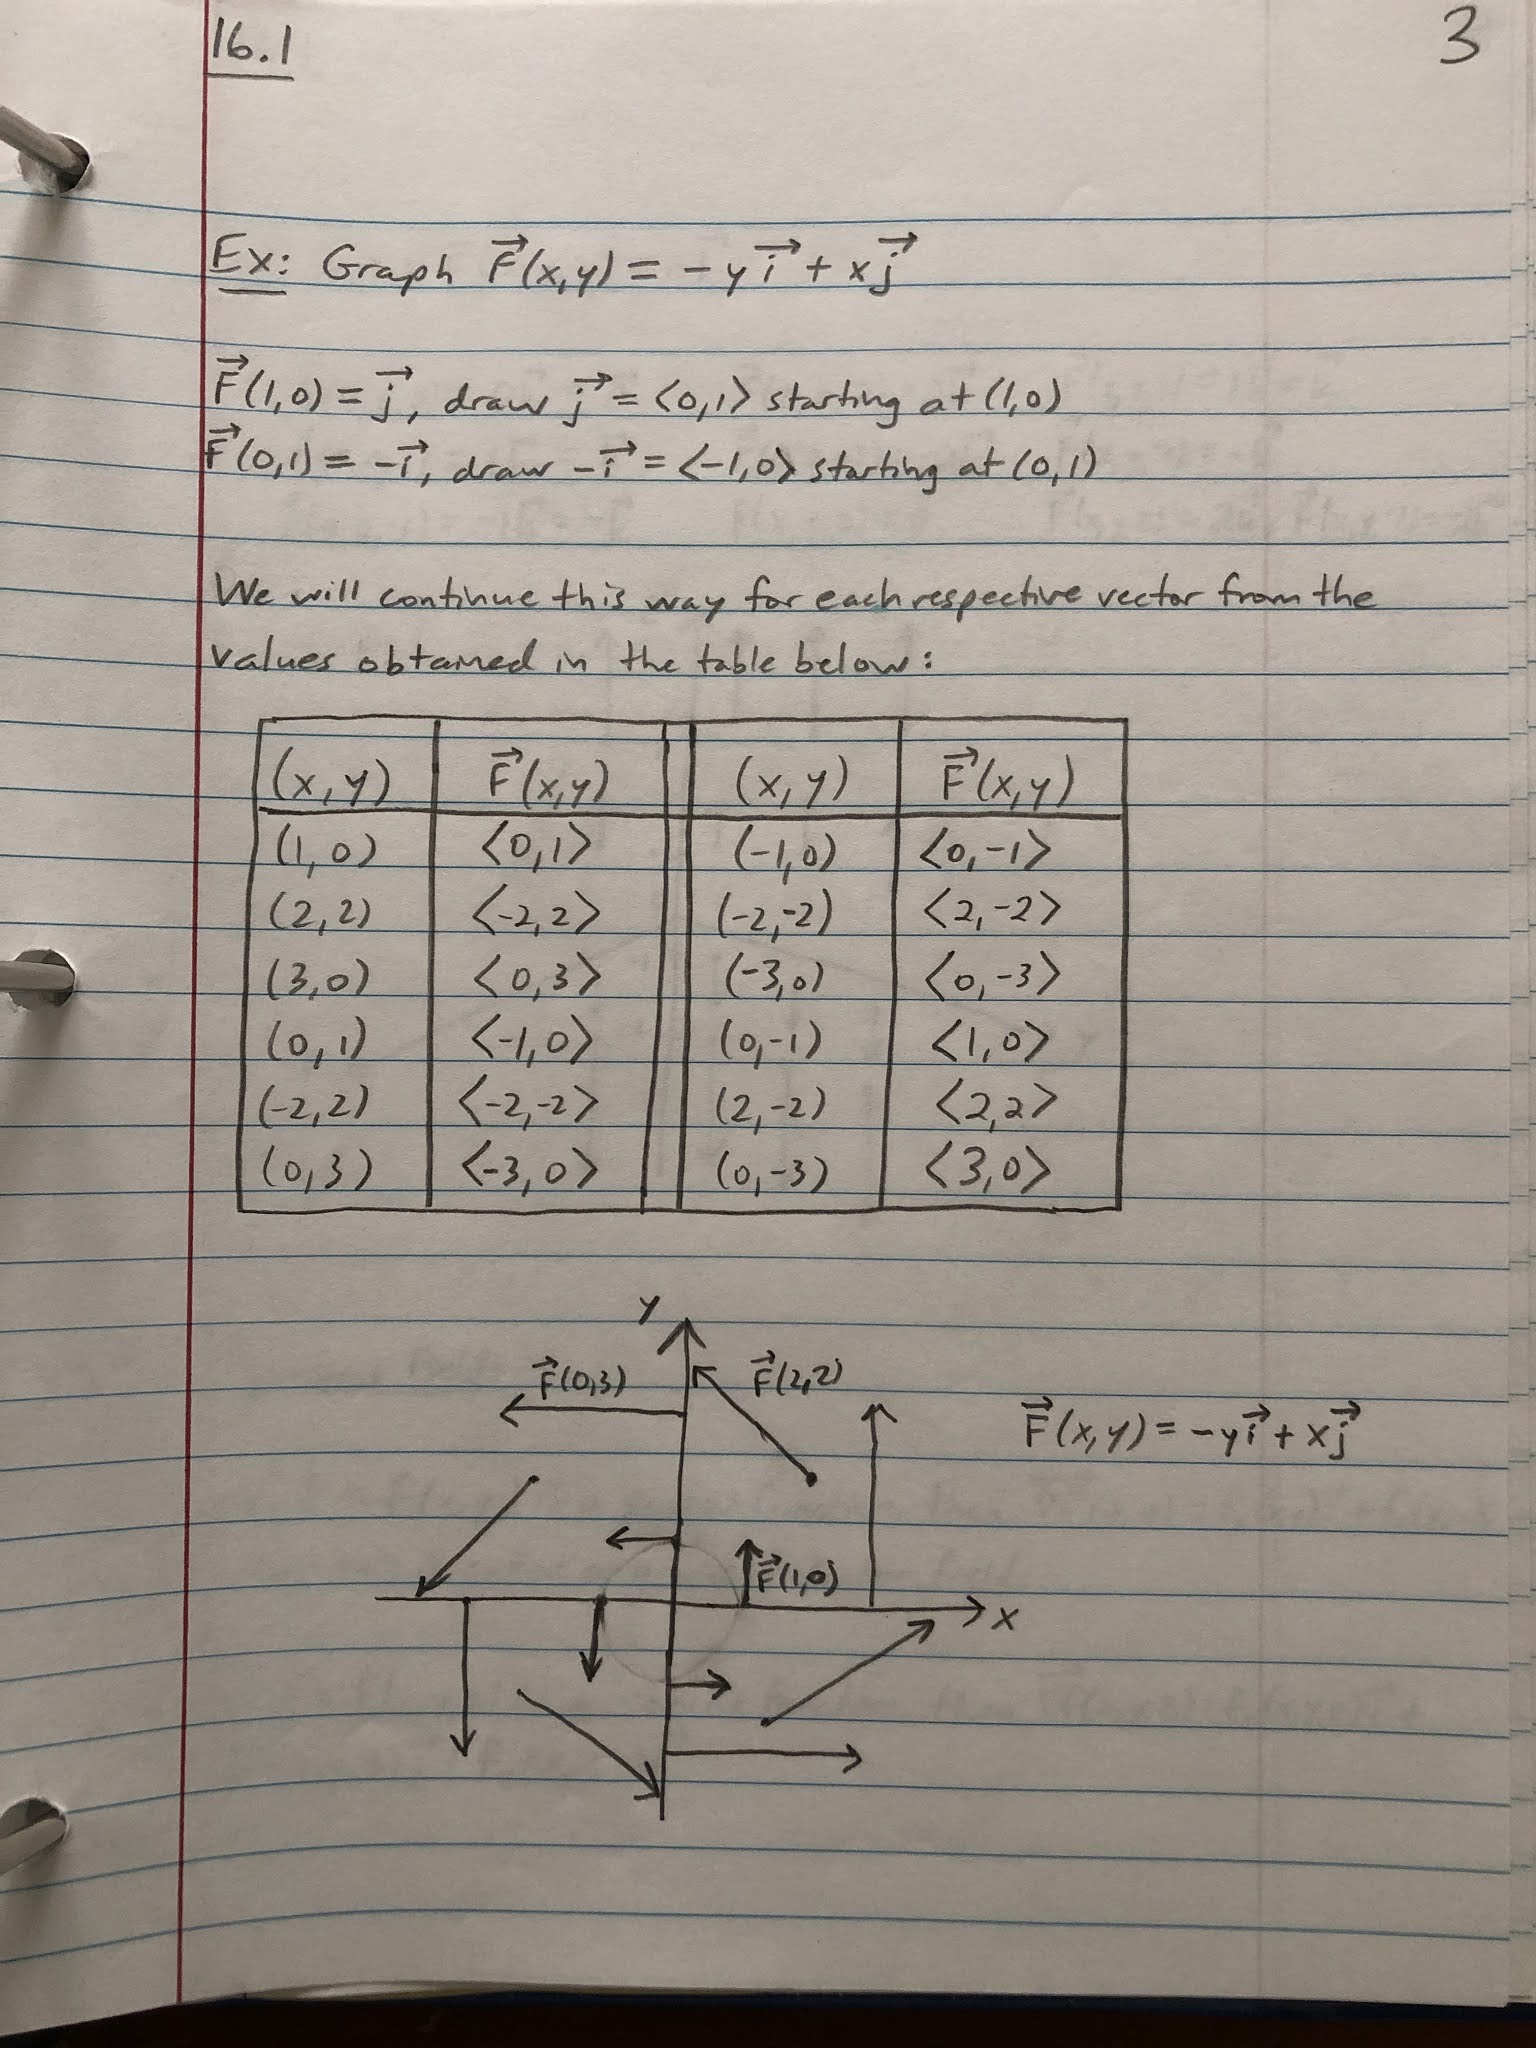 16.1
3
Ex: Graph F⃗(x,y) = -y i⃗ + x j⃗
F⃗(1,0) = j⃗, draw j⃗ = <0,1> starting at (1,0)
F⃗(0,1) = -i⃗, draw -i⃗ = <-1,0> starting at (0,1)
We will continue this way for each respective vector from the
values obtained in the table below:
(x,y) F⃗(x,y) (x,y) F⃗(x,y)
(1,0) <0,1> (-1,0) <0,-1>
(2,2) <-2,2> (-2,-2) <2,-2>
(3,0) <0,3> (-3,0) <0,-3>
(0,1) <-1,0> (0,-1) <1,0>
(-2,2) <-2,-2> (2,-2) <2,2>
(0,3) <-3,0> (0,-3) <3,0>
y
F⃗(0,3) F⃗(2,2)
F⃗(x,y) = -y i⃗ + x j⃗
F⃗(1,0)
x